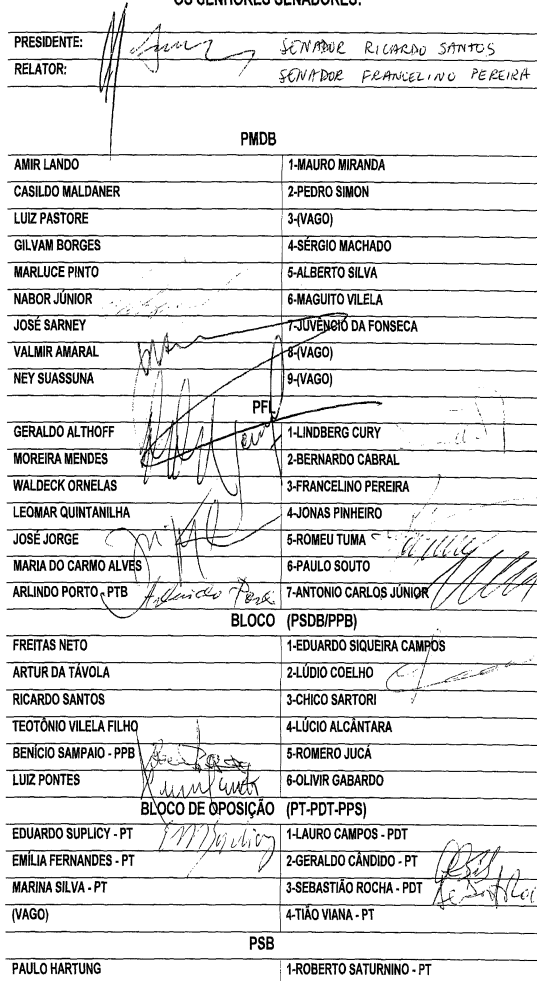 OS SENHORES SENADORES:
PRESIDENTE: SENADOR RICARDO SANTOS
RELATOR: SENADOR FRANCELINO PEREIRA
PMDB
AMIR LANDO 1-MAURO MIRANDA
CASILDO MALDANER 2-PEDRO SIMON
LUIZ PASTORE 3-(VAGO)
GILVAM BORGES 4-SÉRGIO MACHADO
MARLUCE PINTO 5-ALBERTO SILVA
NABOR JÚNIOR 6-MAGUITO VILELA
JOSÉ SARNEY 7-JUVÊNCIO DA FONSECA
VALMIR AMARAL 8-(VAGO)
NEY SUASSUNA 9-(VAGO)
PFL
GERALDO ALTHOFF 1-LINDBERG CURY
MOREIRA MENDES 2-BERNARDO CABRAL
WALDECK ORNELAS 3-FRANCELINO PEREIRA
LEOMAR QUINTANILHA 4-JONAS PINHEIRO
JOSÉ JORGE 5-ROMEU TUMA
MARIA DO CARMO ALVES 6-PAULO SOUTO
ARLINDO PORTO - PTB Arlindo Porto 7-ANTONIO CARLOS JÚNIOR
BLOCO (PSDB/PPB)
FREITAS NETO 1-EDUARDO SIQUEIRA CAMPOS
ARTUR DA TÁVOLA 2-LÚDIO COELHO
RICARDO SANTOS 3-CHICO SARTORI
TEOTÔNIO VILELA FILHO 4-LÚCIO ALCÂNTARA
BENÍCIO SAMPAIO - PPB 5-ROMERO JUCÁ
LUIZ PONTES 6-OLIVIR GABARDO
BLOCO DE OPOSIÇÃO (PT-PDT-PPS)
EDUARDO SUPLICY - PT 1-LAURO CAMPOS - PDT
EMÍLIA FERNANDES - PT 2-GERALDO CÂNDIDO - PT
MARINA SILVA - PT 3-SEBASTIÃO ROCHA - PDT
(VAGO) 4-TIÃO VIANA - PT
PSB
PAULO HARTUNG 1-ROBERTO SATURNINO - PT